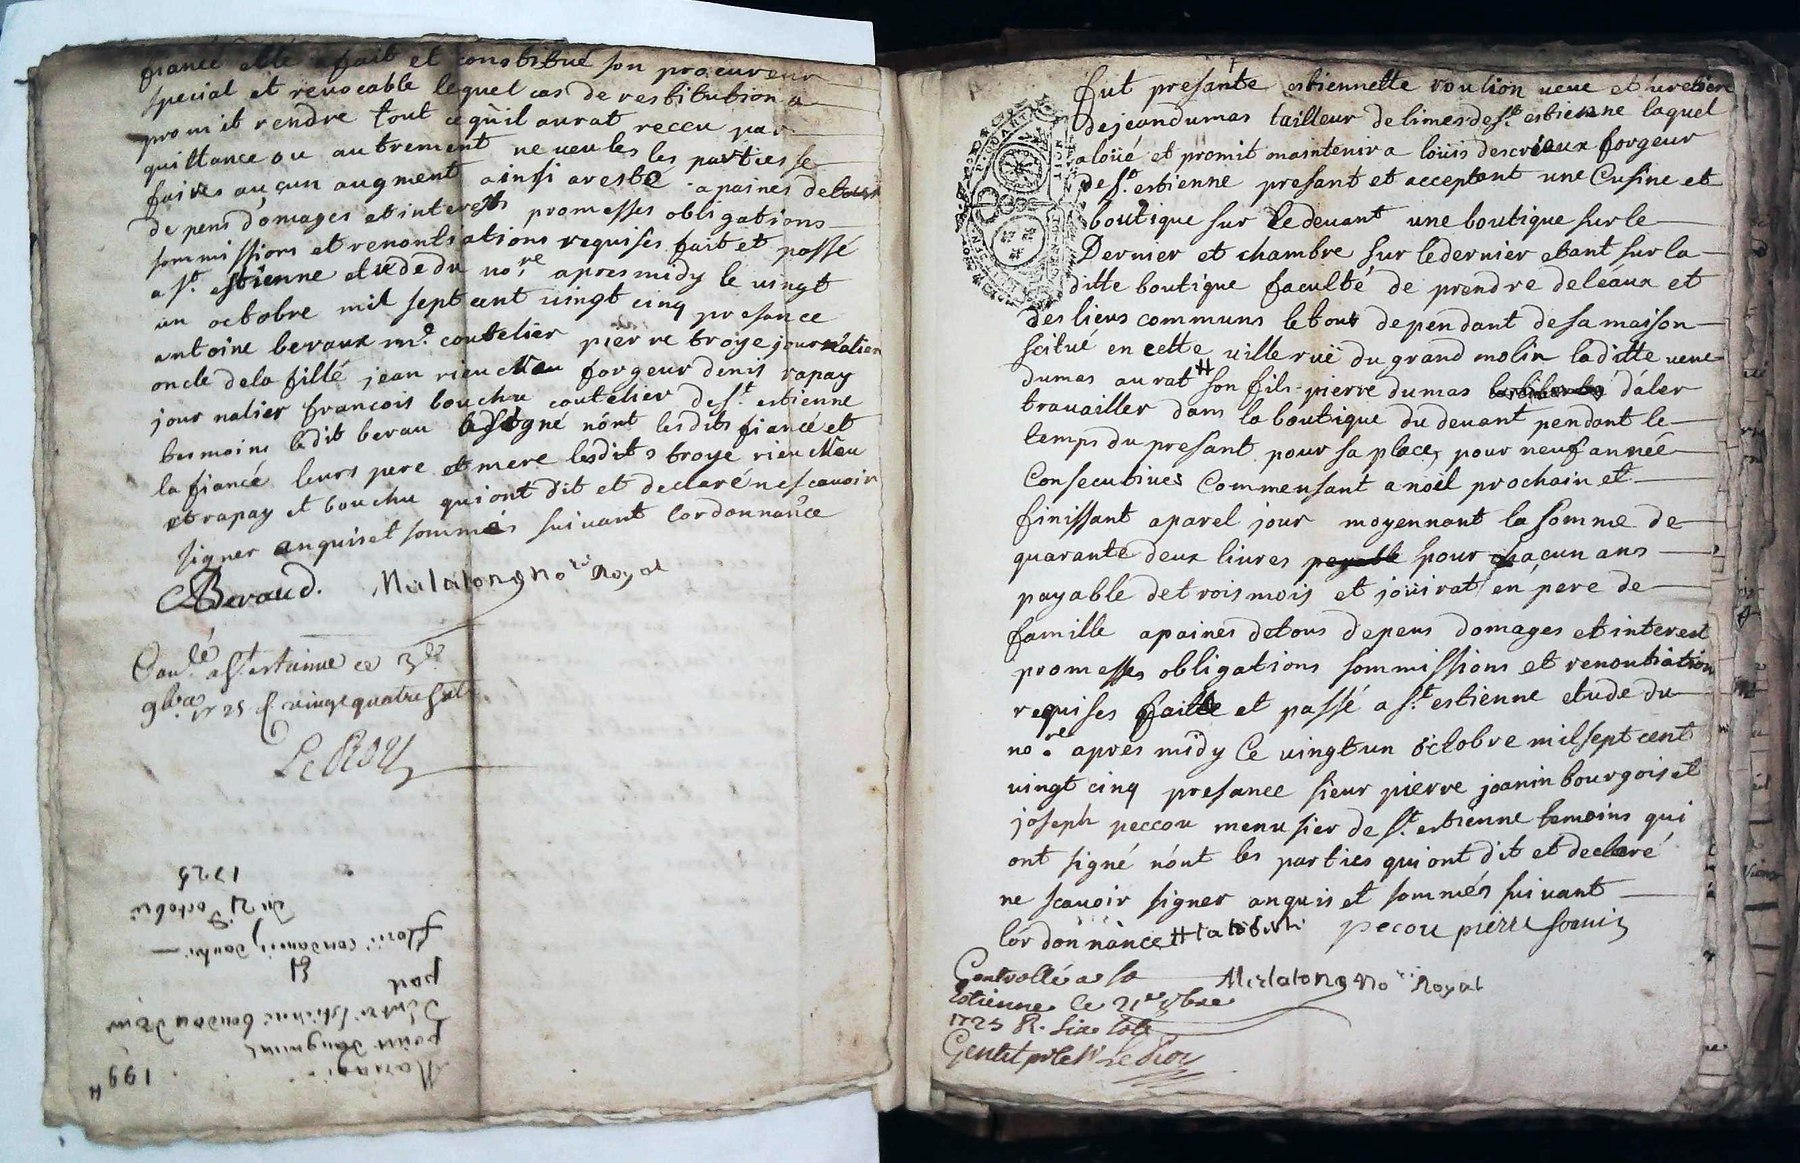 fiancé elle a fait et constitué son procureur
special et revocable lequel cas de restitution a
promit rendre tout ce qu'il aurat receu par
quittance ou autrement ne veules les parties se
faires auçun augment ainsi aresté a paines de tous
depens domages et interests promesses obligations
sommissions et renontsations requises fait et passé
a St. estienne etude du no.re apres midy le vingt
un octobre mil sept cent vingt cinq presance
antoine beraux m.e coutelier pierre troye journalier
oncle dela fillé jean rieu forgeur denis rapay
journalier francois bouchu coutelier de St. estienne
tesmoins ledit berau a signé nónt lesdits fiancé et
la fiancé leurs pere et mere lesdits troye rieu
et rapay et bouchu qui ont dit et declaré ne scavoir
signer enquis et sommés suivant lordonnance
Beraud. no.re Royal
Con.lé a St estienne ce 3
9bre 1725 R vingt quatre sols
Le Roy
199
Mariage
pour
d'entre
par
Et
du 21 octobre
1725
fut presante estiennette roulion veue et heretiere
de jean dumas tailleur de limes de St. estienne laquel
a loüé et promit maintenir a loüis descrieux forgeur
de St. estienne presant et acceptant une Cusine et
boutique sur le devant une boutique sur le
Dernier et chambre sur le dernier etant sur la
ditte boutique faculté de prendre de léaux et
des lieus communs le tout dependant de sa maison
scitué en cette ville ruë du grand molin laditte veue
dumas aurat # son fils pierre dumas d'aler
travailler dans la boutique du devant pendant le
temps du presant pour sa place, pour neuf année
Consecutives Commensant a noël prochain et
finissant a parel jour moyennant la somme de
quarante deux livres payable pour chaçun ans
payable de trois mois et joüirat en pere de
famille a paines de tous depens domages et interest
promesses obligations sommissions et renontiation
requises faitte et passé a St. estienne etude du
no.re apres midy Ce vingt un octobre mil sept cent
vingt cinq presance sieur pierre joanin bourgois et
joseph peccou menusier de St. estienne temoins qui
ont signé nónt les parties qui ont dit et declaré
ne scavoir signer anquis et sommés suivant
lórdonnánce #
pecou pierre Joanin
no.re Royal
Controllé a St
Estienne le
1725 R. six sols
Le Roy